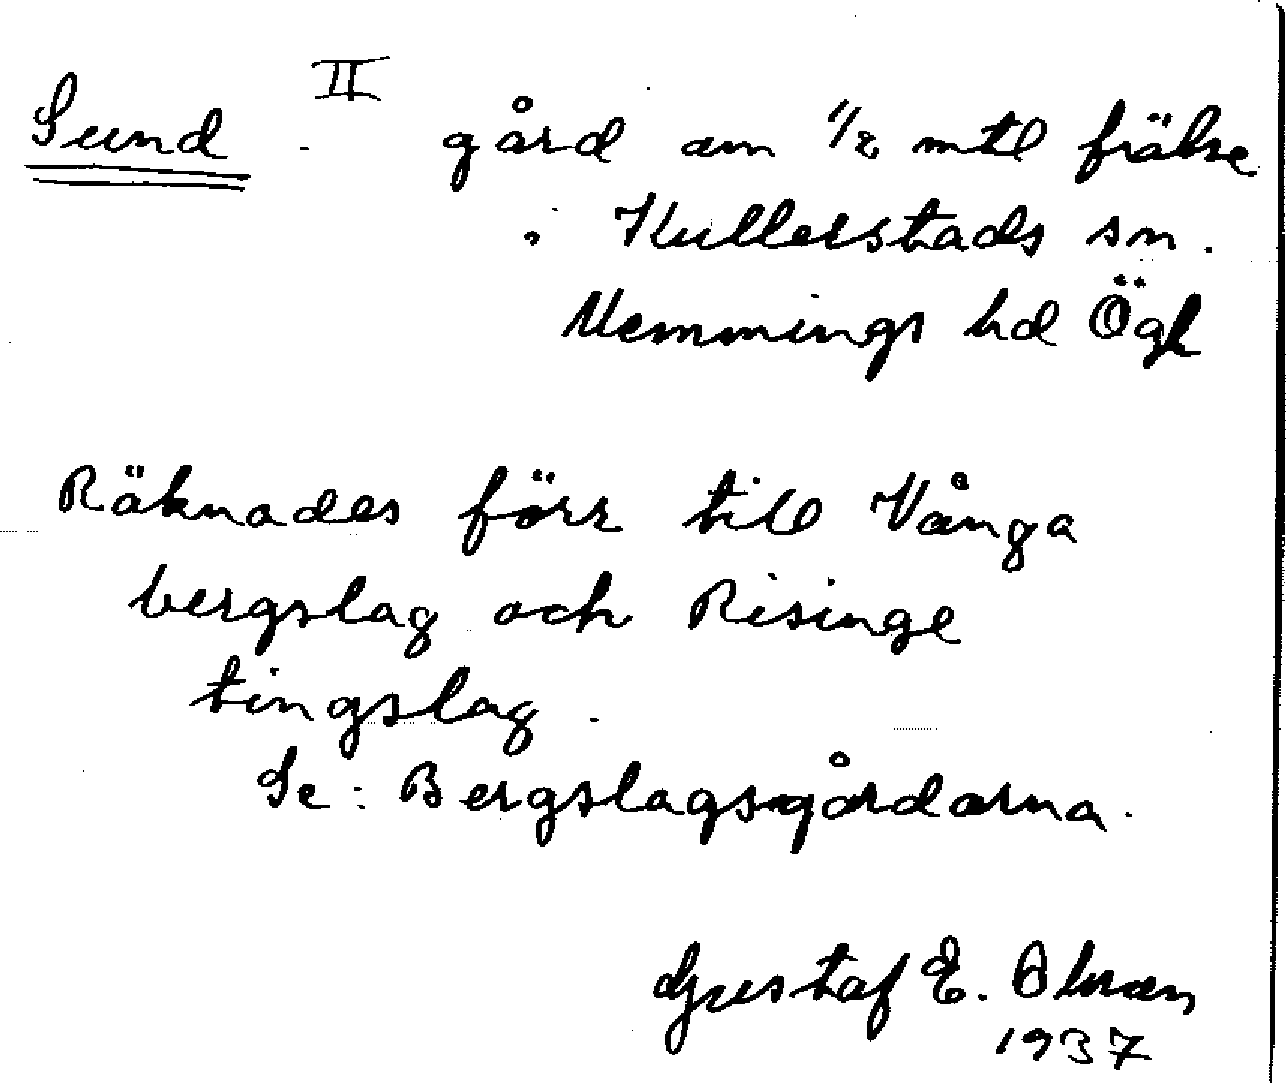 Sund II gård om 1/2 mtl frälse
i Kullerstads sn.
Memmings hd Ögl
Räknades förr till Vånga
bergslag och Risinge
tingslag.
Se: Bergslagsgårdarna.
Gustaf E.
1937